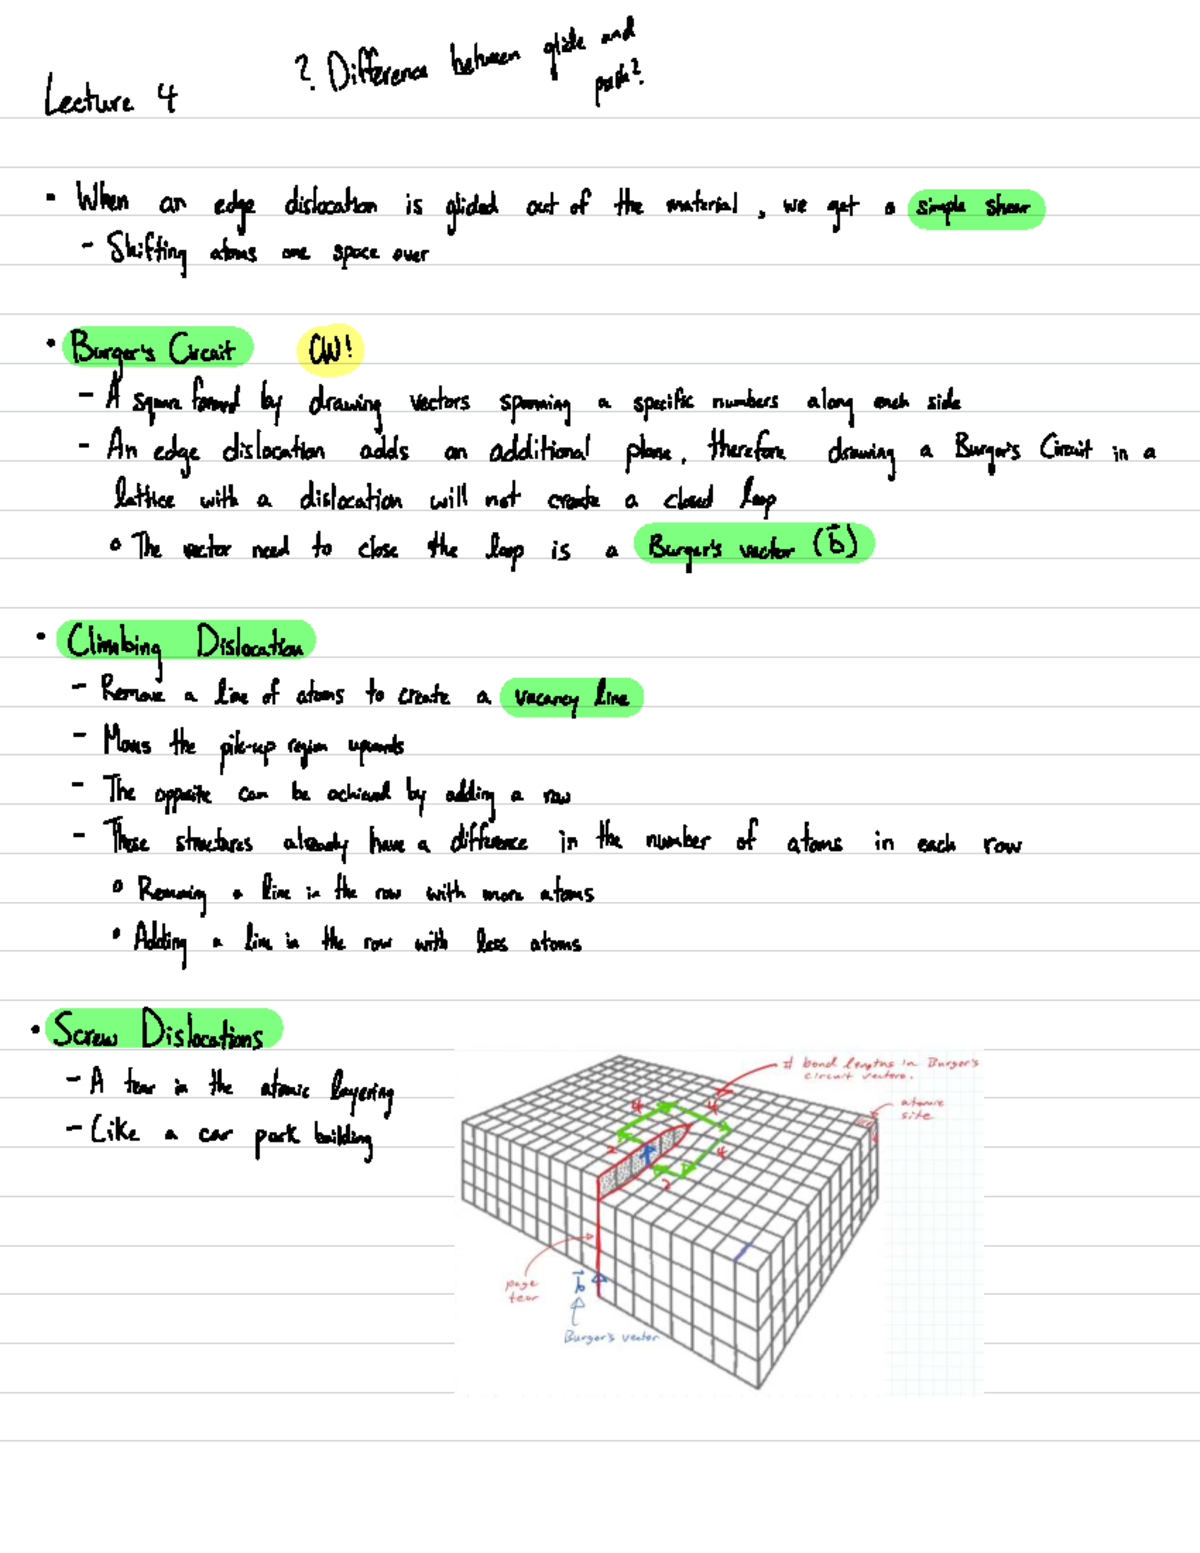 ? Difference between glide and
push?
Lecture 4
- When an edge dislocation is glided out of the material, we get a simple shear
- Shifting atoms one space over
• Burger's Circuit CW!
- A square formed by drawing vectors spanning a specific numbers along each side
- An edge dislocation adds an additional plane, therefore drawing a Burger's Circuit in a
lattice with a dislocation will not create a closed loop
• The vector need to close the loop is a Burger's vector (b⃗)
• Climbing Dislocation
- Remove a line of atoms to create a vacancy line
- Moves the pile-up region upwards
- The opposite can be achieved by adding a row
- These structures already have a difference in the number of atoms in each row
• Removing a line in the row with more atoms
• Adding a line in the row with less atoms
• Screw Dislocations
- A tear in the atomic layering
- Like a car park building
# bond lengths in Burger's
circuit vectors.
atomic
site
4
4
2
4
2
page
tear
b⃗
Burger's vector